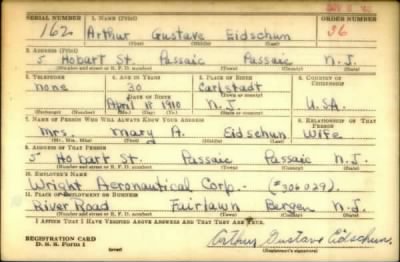 SERIAL NUMBER 1. NAME (Print) ORDER NUMBER
162 Arthur Gustave Eidschun 36
(First) (Middle) (Last)
2. ADDRESS (Print)
5 Hobart St. Passaic Passaic N.J.
(Number and street or R. F. D. number) (Town) (County) (State)
3. TELEPHONE 4. AGE IN YEARS 5. PLACE OF BIRTH 6. COUNTRY OF CITIZENSHIP
none 30 Carlstadt
DATE OF BIRTH (Town or county)
April 18 1910 N.J. U.S.A.
(Mo.) (Day) (Yr.) (State or country)
7. NAME OF PERSON WHO WILL ALWAYS KNOW YOUR ADDRESS 8. RELATIONSHIP OF THAT PERSON
Mrs. Mary A. Eidschun Wife
(Mr., Mrs., Miss) (First) (Middle) (Last)
9. ADDRESS OF THAT PERSON
5 Hobart St. Passaic Passaic N.J.
(Number and street or R. F. D. number) (Town) (County) (State)
10. EMPLOYER'S NAME
Wright Aeronautical Corp.- (#306029).
11. PLACE OF EMPLOYMENT OR BUSINESS
River Road Fairlawn Bergen N.J.
(Number and street or R. F. D. number) (Town) (County) (State)
I AFFIRM THAT I HAVE VERIFIED ABOVE ANSWERS AND THAT THEY ARE TRUE.
REGISTRATION CARD
D. S. S. Form 1 (over) Arthur Gustave Eidschun.
(Registrant's signature)